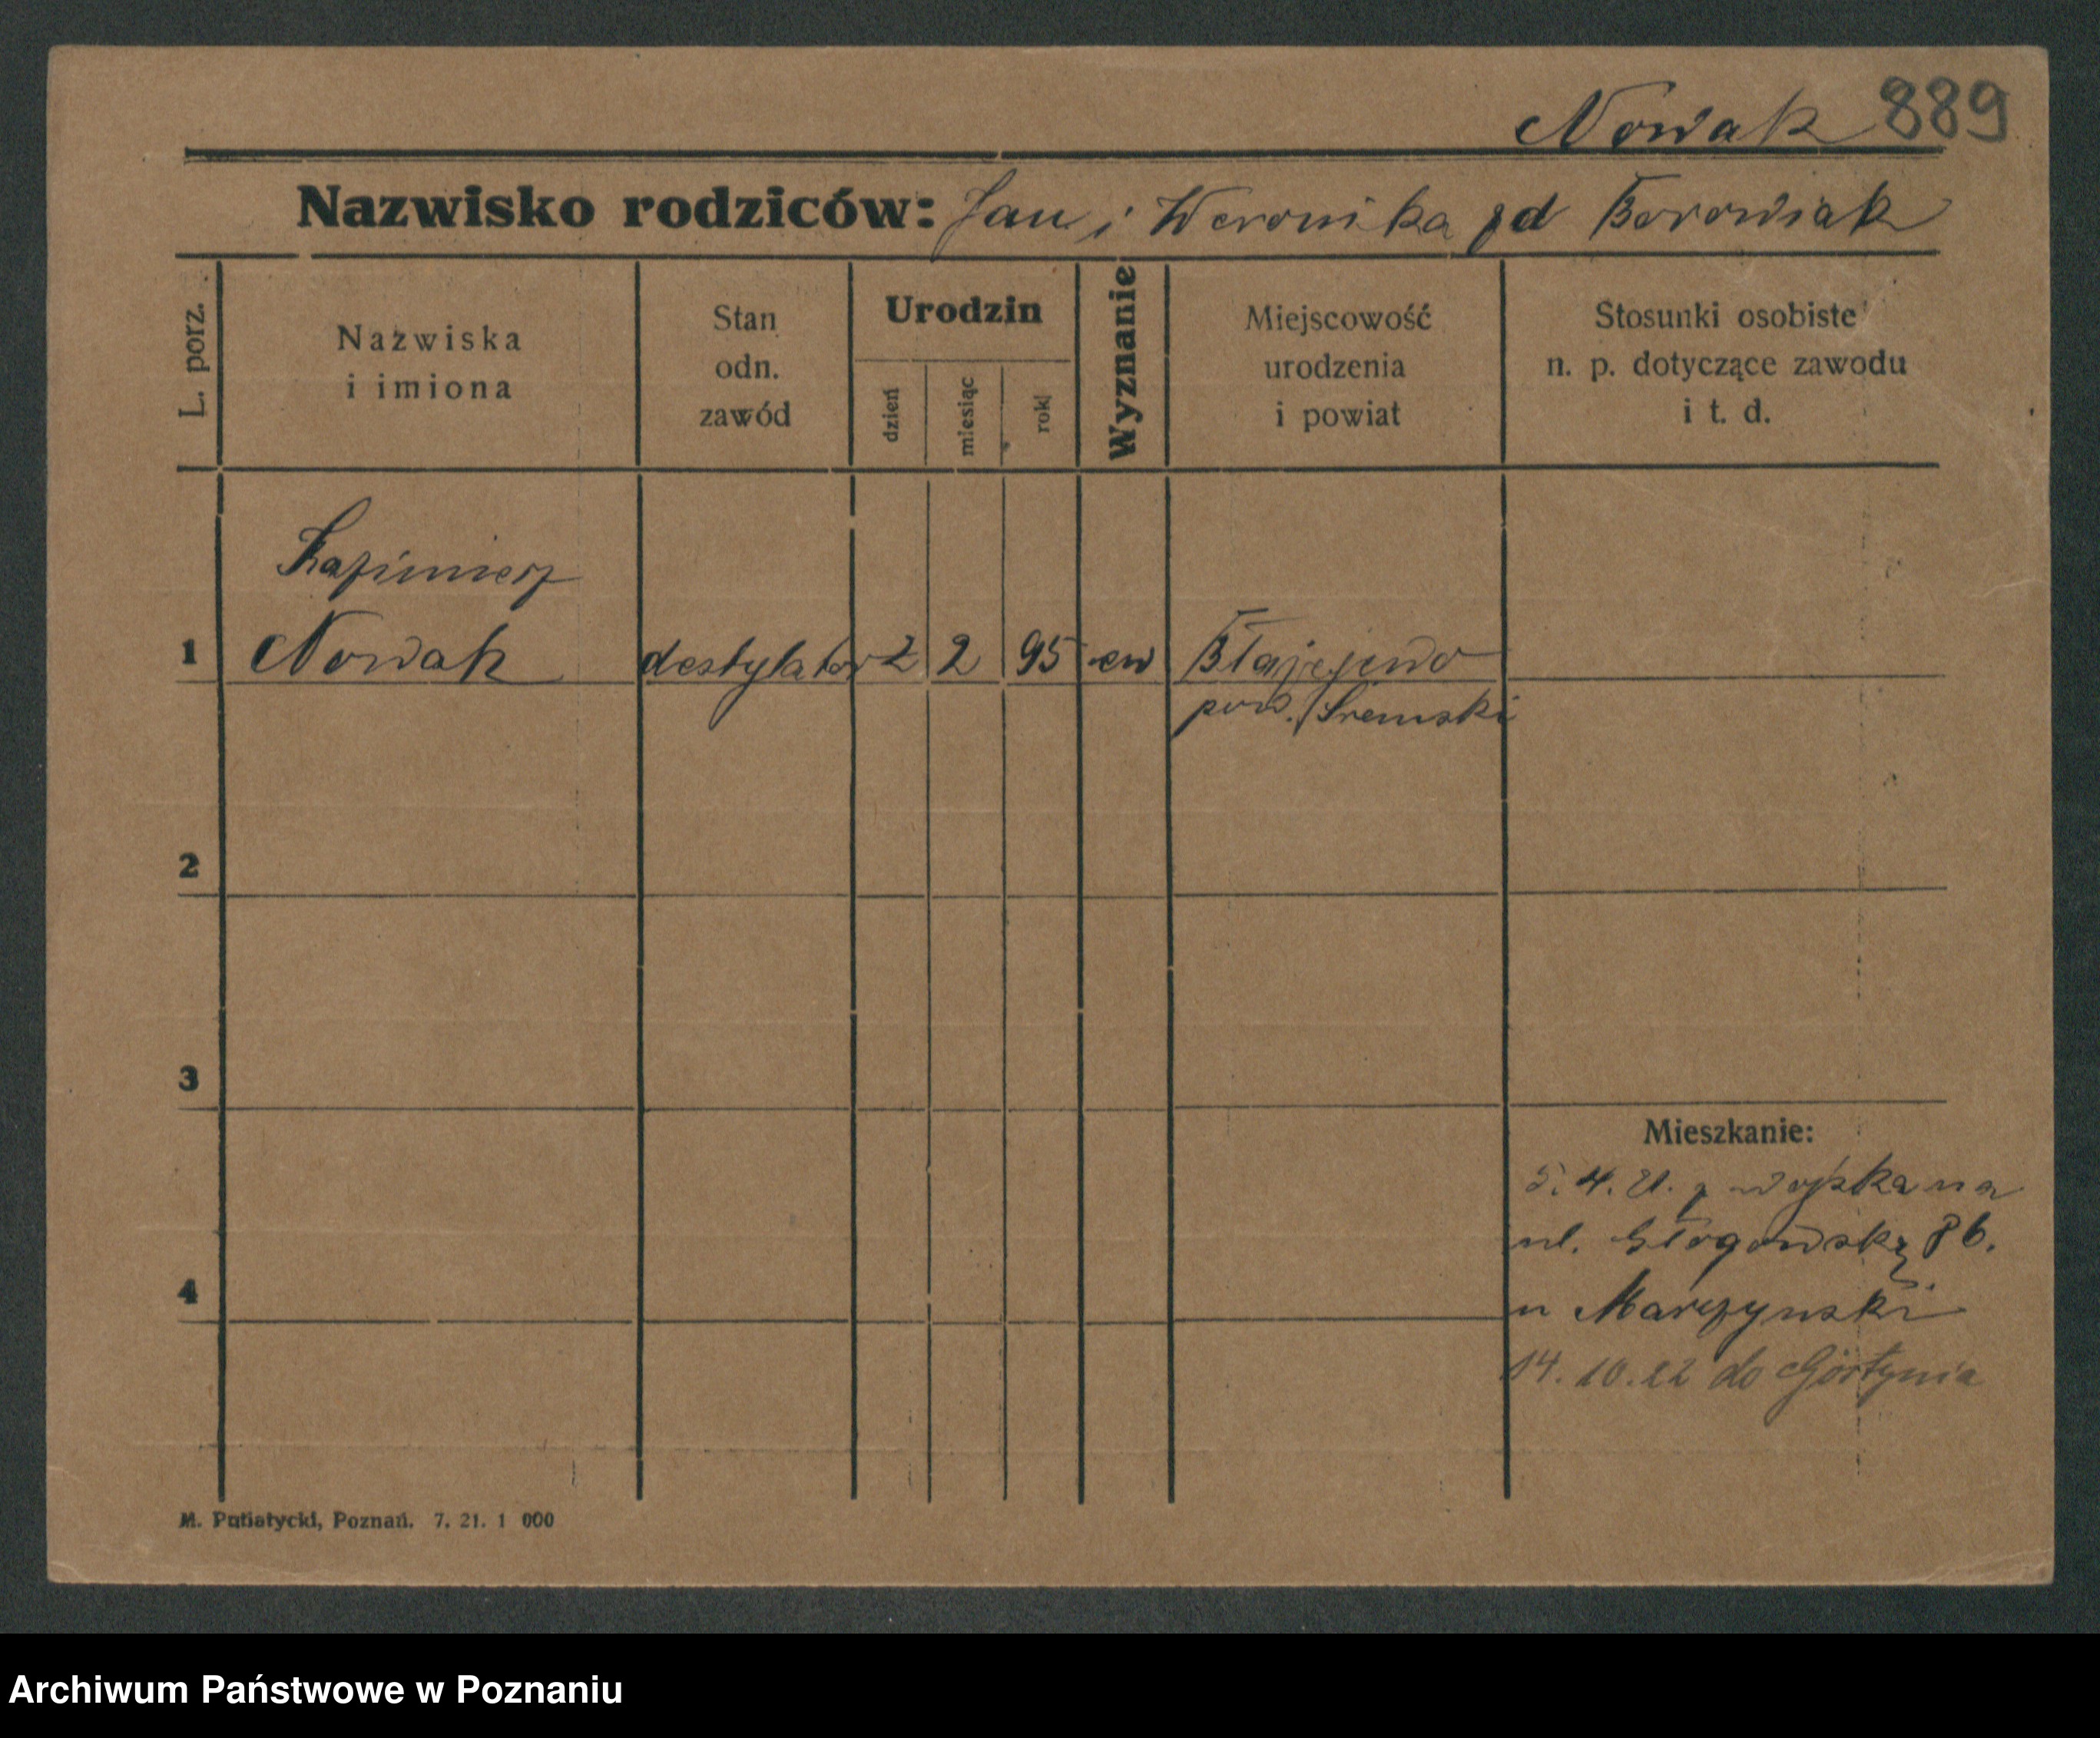 Nowak 889
Nazwisko rodziców: Jan i Weronika zd Borowiak
L. porz.
Nazwiska
i imiona
Stan
odn.
zawód
Urodzin
dzień
miesiąc
rok
Wyznanie
Miejscowość
urodzenia
i powiat
Stosunki osobiste
n. p. dotyczące zawodu
i t. d.
Kazimierz
1 Nowak destylator 2 2 95 ew Błażejewo
pow. Śremski
2
3
Mieszkanie:
5. 4. 21. z wojska na
ul. Głogowską 86.
4
u Marzynski
14. 10. 22 do Gostynia
M. Putiatycki, Poznań. 7. 21. 1 000
Archiwum Państwowe w Poznaniu